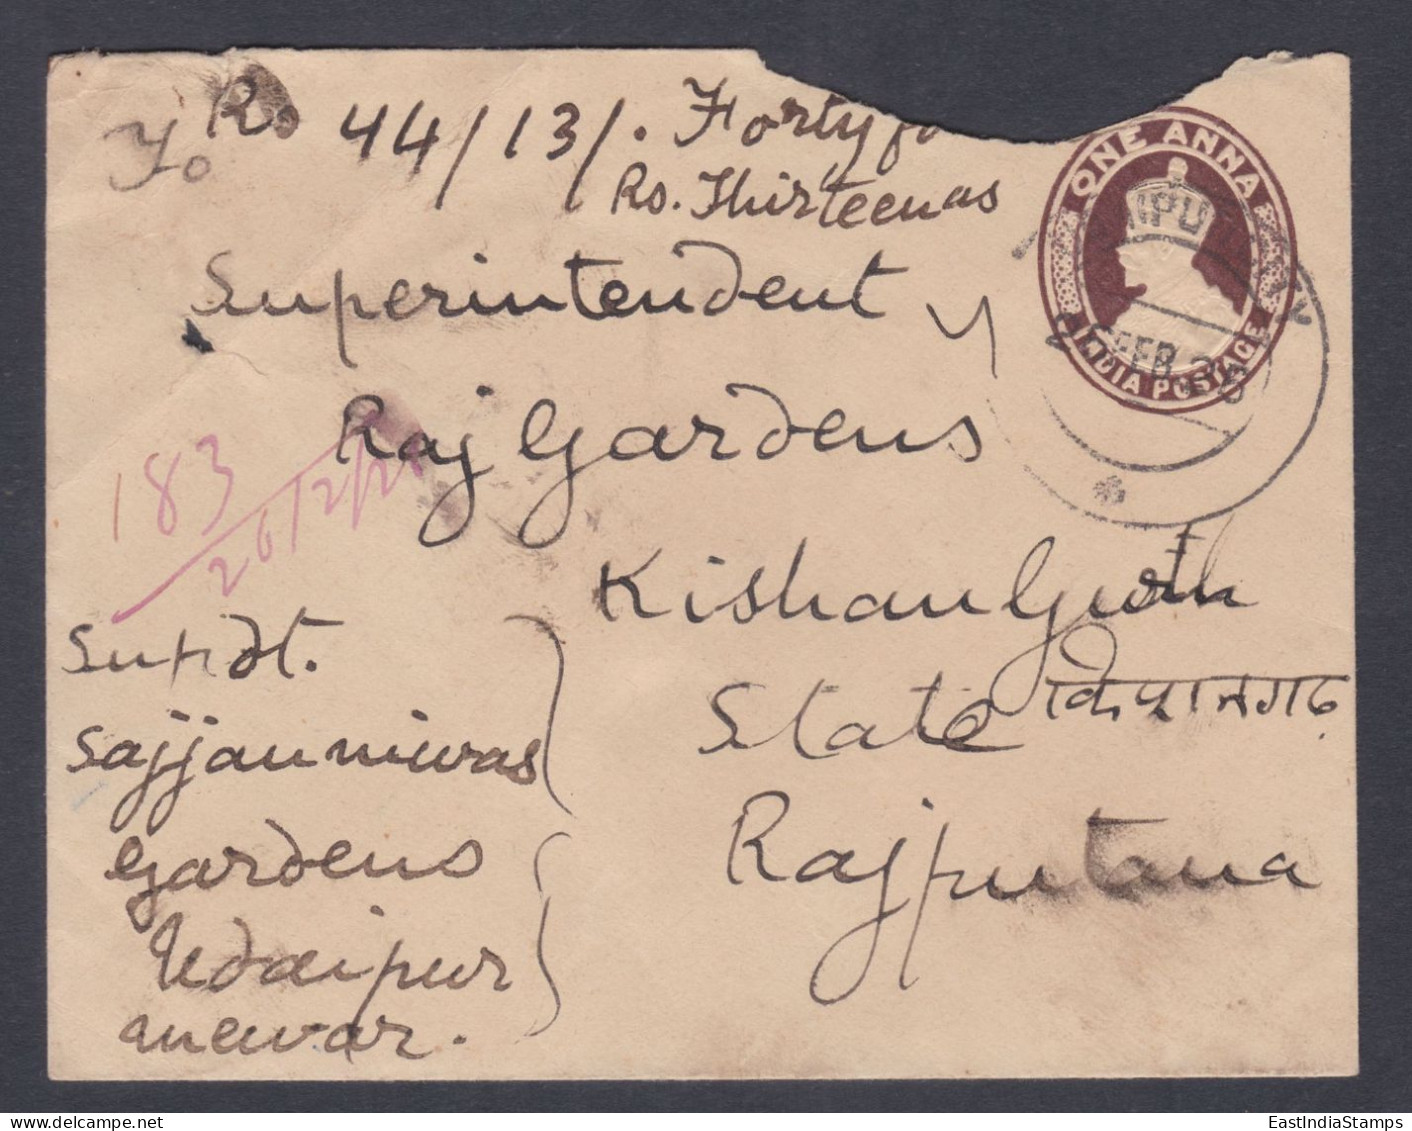 To
Rs 44/13/. Forty
Rs. Thirteen as
ONE ANNA
INDIA POSTAGE
FEB
Superintendent
Raj Gardens
183
Kishangurh
State किशनगढ
Rajputana
Supdt.
Sajjan niwas
Gardens
Udaipur
mewar.
EastIndiaStamps